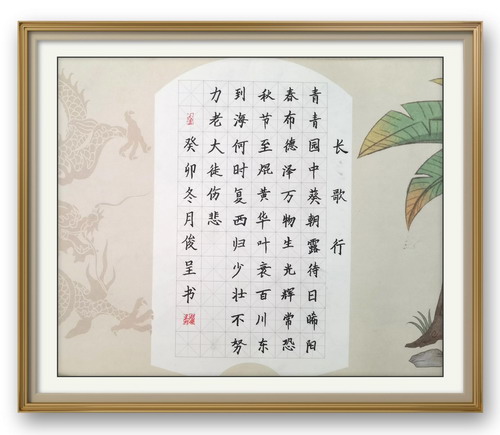 长歌行
青青园中葵朝露待日晞阳
春布德泽万物生光辉常恐
秋节至焜黄华叶衰百川东
到海何时复西归少壮不努
力老大徒伤悲
癸卯冬月俊呈书